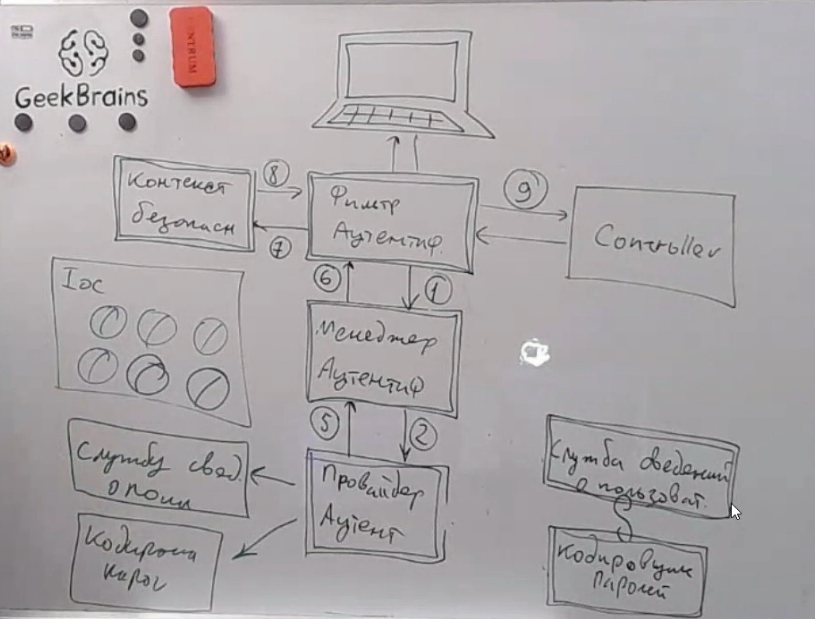 GeekBrains
CENTRUM
Контекст
безопасн
8
7
Фильтр
Аутентиф.
9
Controller
6
1
IoC
Менеджер
Аутентиф
5
2
Службу свед.
о польз
Провайдер
Аутент
Служба сведений
о пользоват.
Кодировщик
паролей